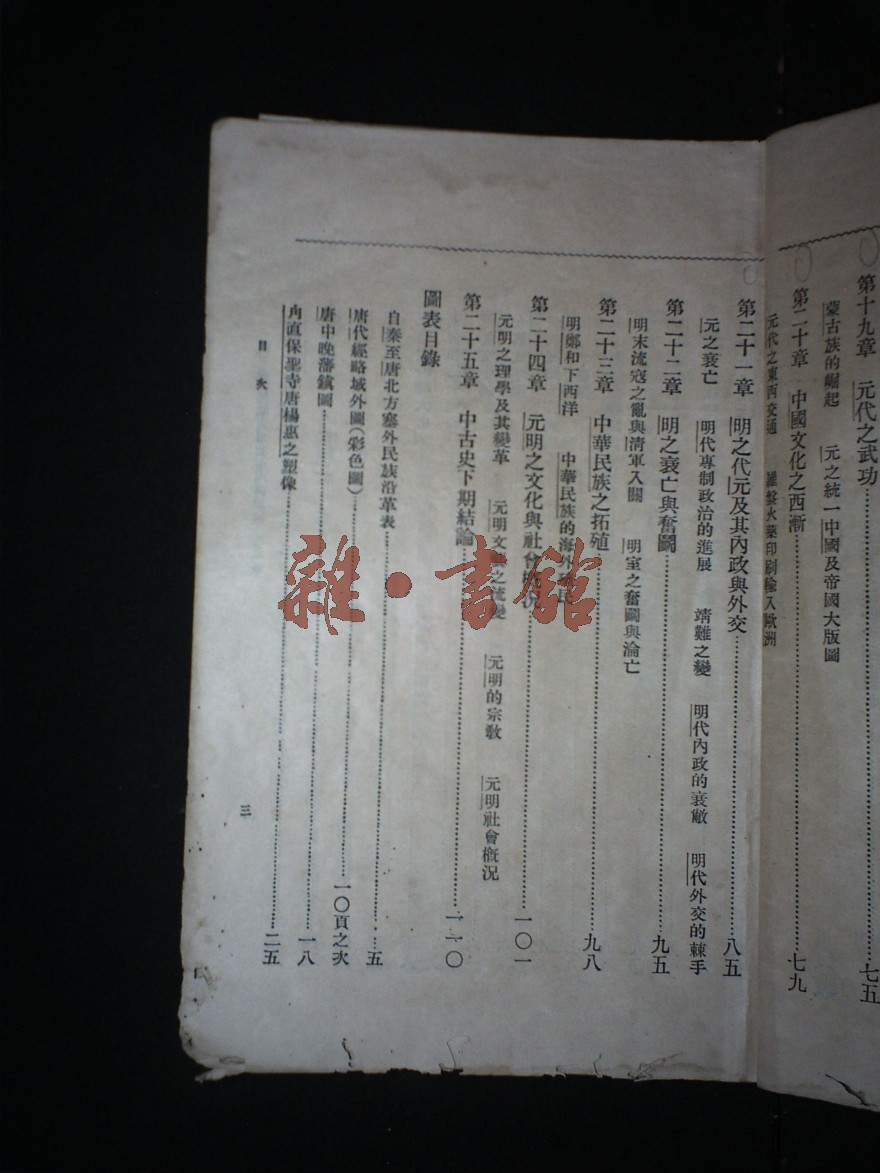 第十九章　元代之武功……七五
蒙古族的崛起　元之統一中國及帝國大版圖
第二十章　中國文化之西漸……七九
元代之東西交通　羅盤火藥印刷輸入歐洲
第二十一章　明之代元及其內政與外交……八五
元之衰亡　明代專制政治的進展　靖難之變　明代內政的衰敝　明代外交的棘手
第二十二章　明之衰亡與奮鬭……九五
明末流寇之亂與清軍入關　明室之奮鬭與淪亡
第二十三章　中華民族之拓殖……九八
明鄭和下西洋　中華民族的海外殖民
第二十四章　元明之文化與社會概況……一〇一
元明之理學及其變革　元明文學之流變　元明的宗敎　元明社會槪況
第二十五章　中古史下期結論……一一〇
圖表目錄
自秦至唐北方塞外民族沿革表……五
唐代經略域外圖（彩色圖）……一〇頁之次
唐中晚藩鎮圖……一八
甪直保聖寺唐楊惠之塑像……二五
目次
三
雜·書館